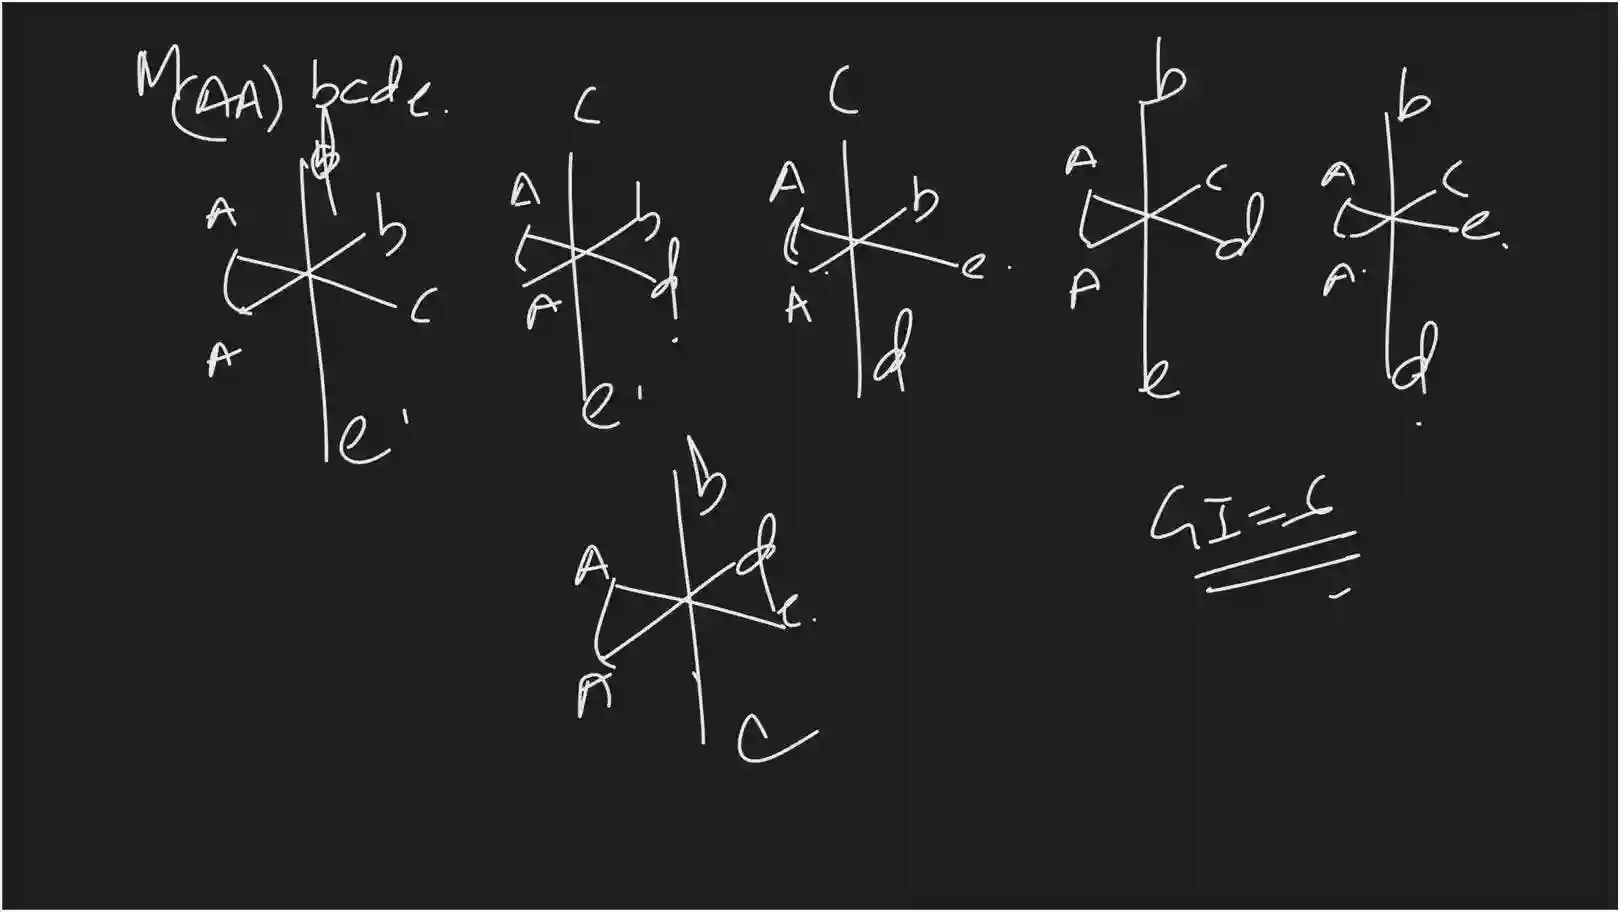 M(AA) bcde.
d
A b
A c
e'
c
A b
A d
e'
c
A b
A e.
d
b
A c
A d
e
b
A c
A e.
d
b
A d
A e.
c
GI = 6